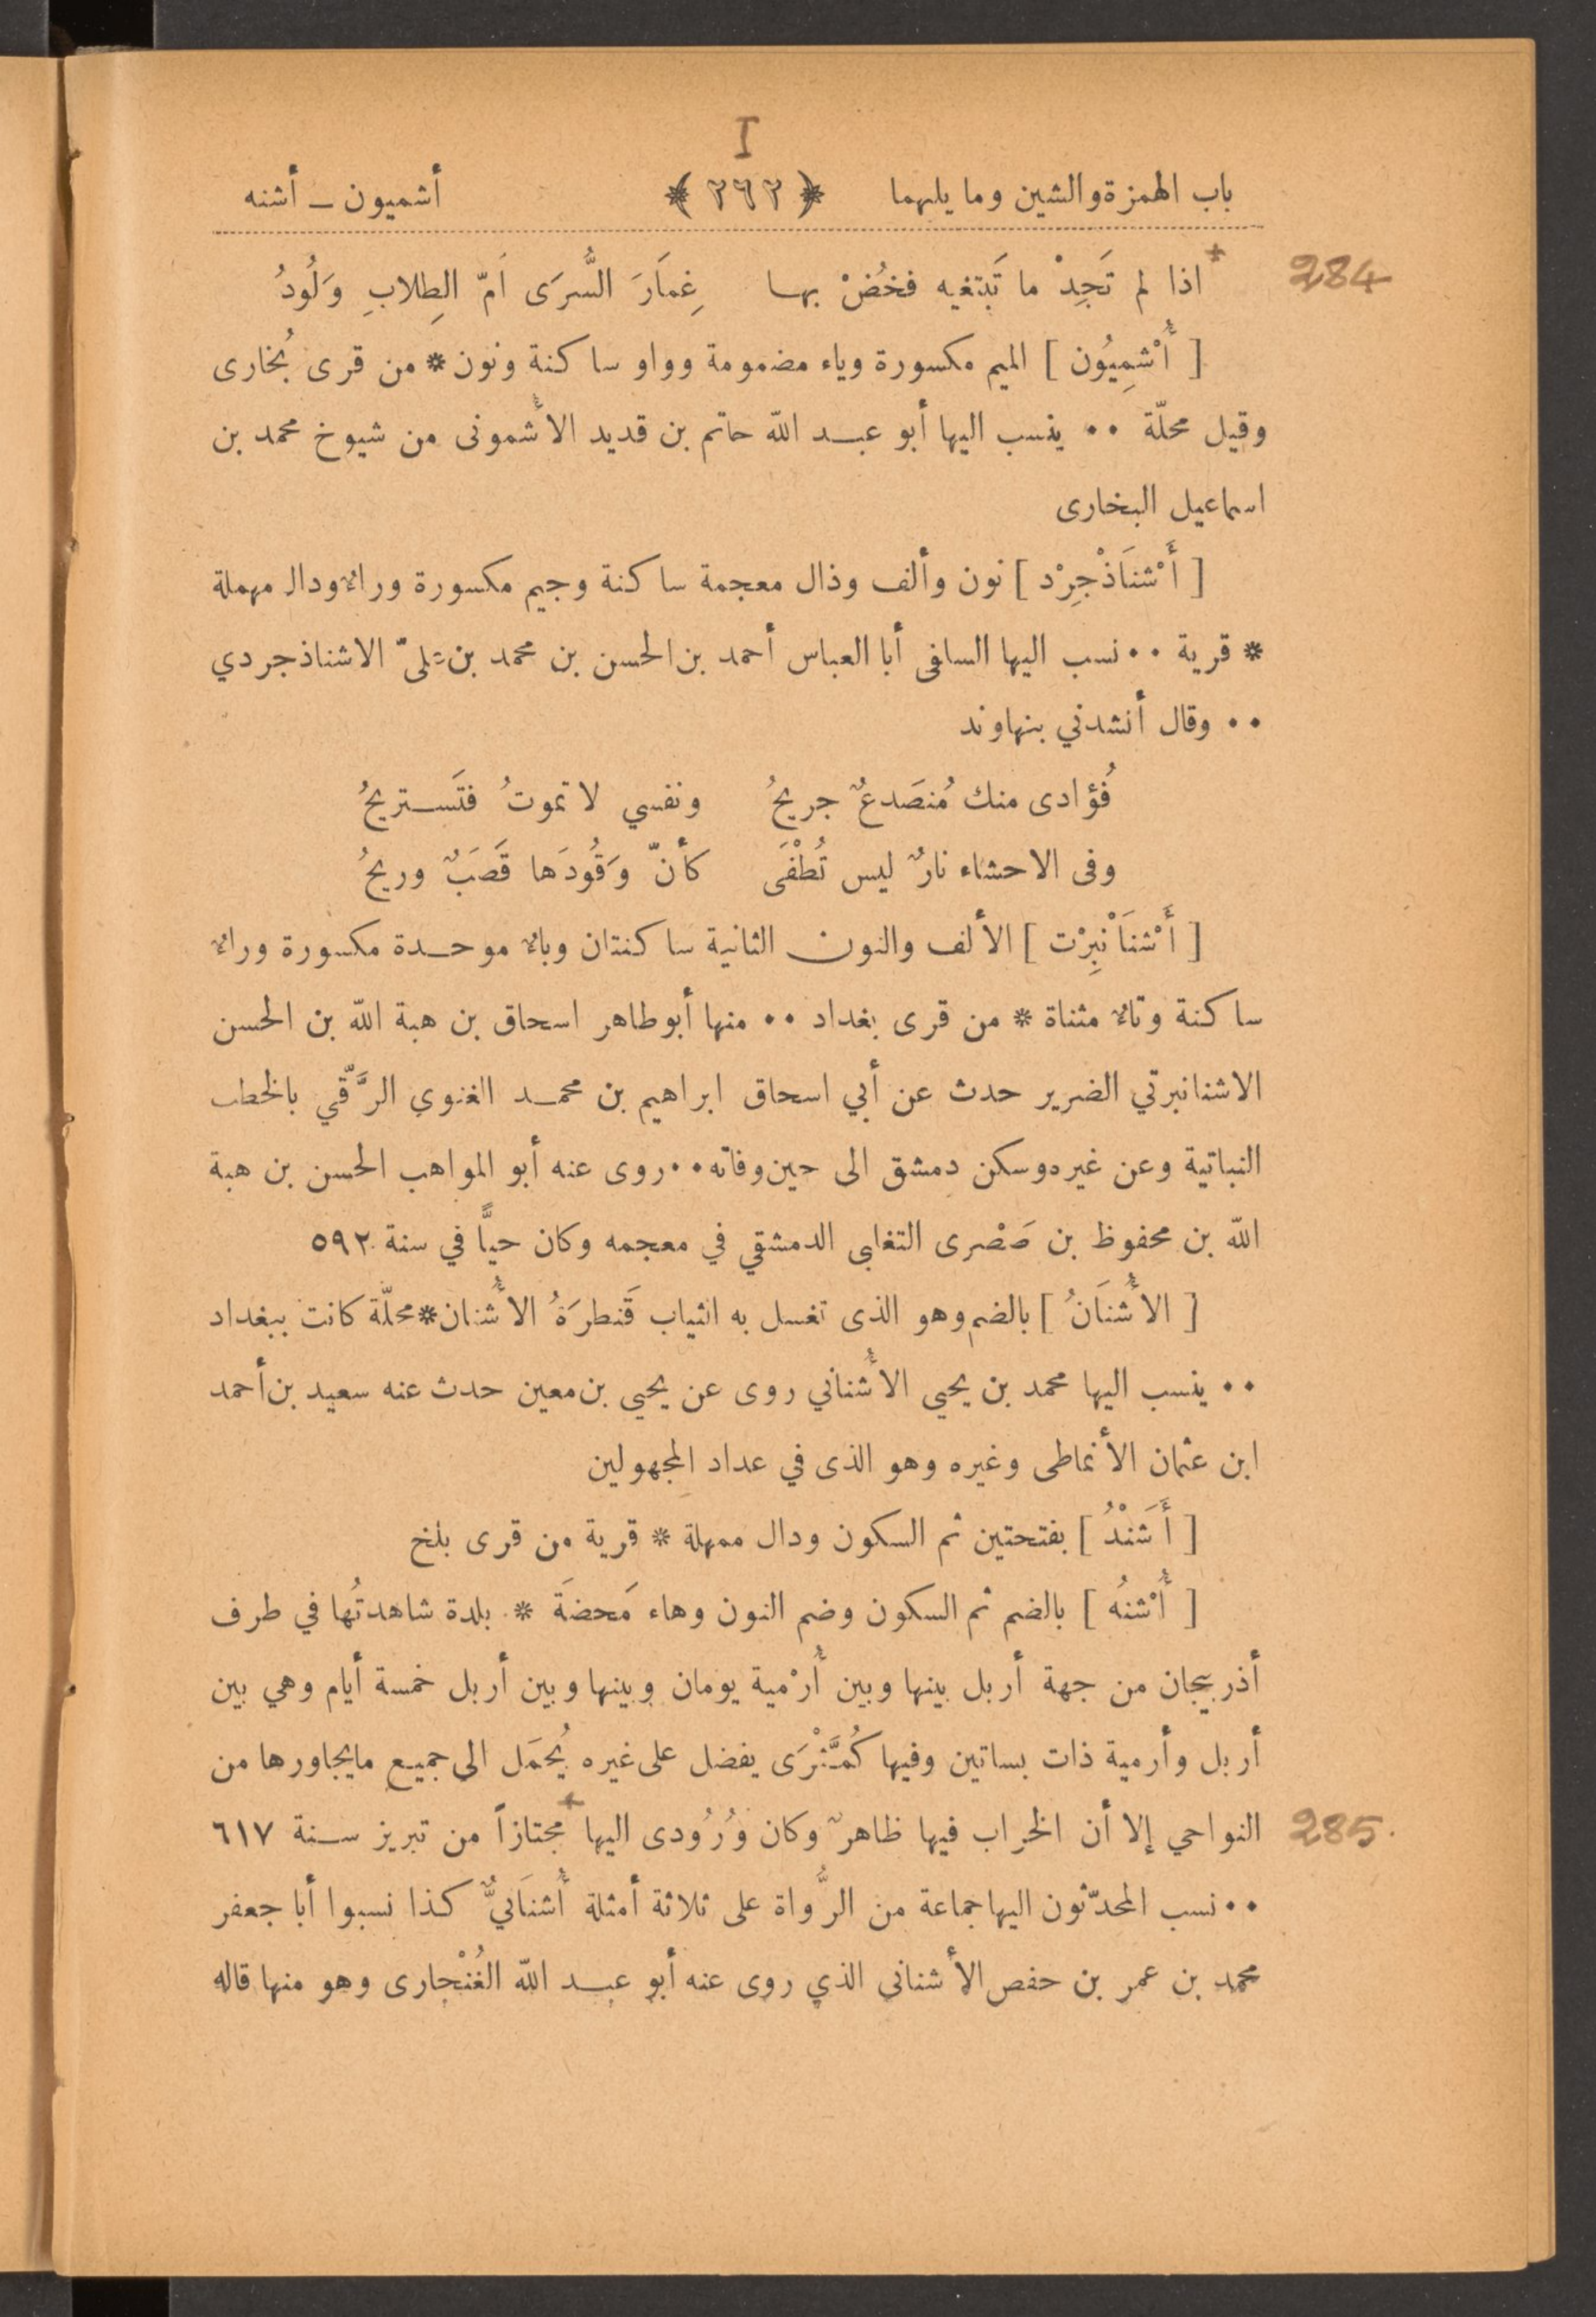 I
باب الهمزة والشين وما يليهما ﴿ ٢٦٢ ﴾ أشميون ــ أشنه
284
اذا لم تَجِدْ ما تَبتغيه فخُضْ بها غِمَارَ السُّرَى اَمّ الطِلابِ وَلُودُ
[ أُشْمِيُون ] الميم مكسورة وياء مضمومة وواو ساكنة ونون * من قرى بُخارى
وقيل محلّة •• ينسب اليها أبو عبد الله حاتم بن قديد الأُشمونى من شيوخ محمد بن
اسماعيل البخارى
[ أَشْنَاذْجِرْد ] نون وألف وذال معجمة ساكنة وجيم مكسورة وراء ودال مهملة
* قرية •• نسب اليها السلفى أبا العباس أحمد بن الحسن بن محمد بن علىّ الاشناذجردي
•• وقال أنشدني بنهاوند
فُؤادى منك مُنصَدعٌ جريحُ ونفسي لا تموتُ فتَستريحُ
وفى الاحشاء نارٌ ليس تُطْفَى كأنّ وَقُودَها قَصَبٌ وريحُ
[ أَشْنَانْبِرْت ] الألف والنون الثانية ساكنتان وباء موحدة مكسورة وراء
ساكنة وتاء مثناة * من قرى بغداد •• منها أبو طاهر اسحاق بن هبة الله بن الحسن
الاشنانبرتي الضرير حدث عن أبي اسحاق ابراهيم بن محمد الغنوي الرَّقّي بالخطب
النباتية وعن غيره وسكن دمشق الى حين وفاته •• روى عنه أبو المواهب الحسن بن هبة
الله بن محفوظ بن صَصْرى التغلبى الدمشقي في معجمه وكان حيًّا في سنة ٥٩٢
[ الأُشنَانُ ] بالضم وهو الذى تغسل به الثياب قَنطرَةُ الأُشنان * محلّة كانت ببغداد
•• ينسب اليها محمد بن يحيى الأُشناني روى عن يحيى بن معين حدث عنه سعيد بن أحمد
ابن عثمان الأنماطى وغيره وهو الذى في عداد المجهولين
[ أَشَنْدُ ] بفتحتين ثم السكون ودال مهملة * قرية من قرى بلخ
[ أُشْنُه ] بالضم ثم السكون وضم النون وهاء مَحضَة * بلدة شاهدتُها في طرف
أذربيجان من جهة أربل بينها وبين أُرْمية يومان وبينها وبين أربل خمسة أيام وهي بين
أربل وأرمية ذات بساتين وفيها كُمَّثْرَى يفضل على غيره يُحمَل الى جميع مايجاورها من
النواحي إلا أن الخراب فيها ظاهرٌ وكان وُرُودى اليها مجتازاً من تبريز سنة ٦١٧
285
•• نسب المحدّثون اليها جماعة من الرُّواة على ثلاثة أمثلة أُشنَانيٌّ كذا نسبوا أبا جعفر
محمد بن عمر بن حفص الأشنانى الذي روى عنه أبو عبد الله الغُنْجارى وهو منها قاله